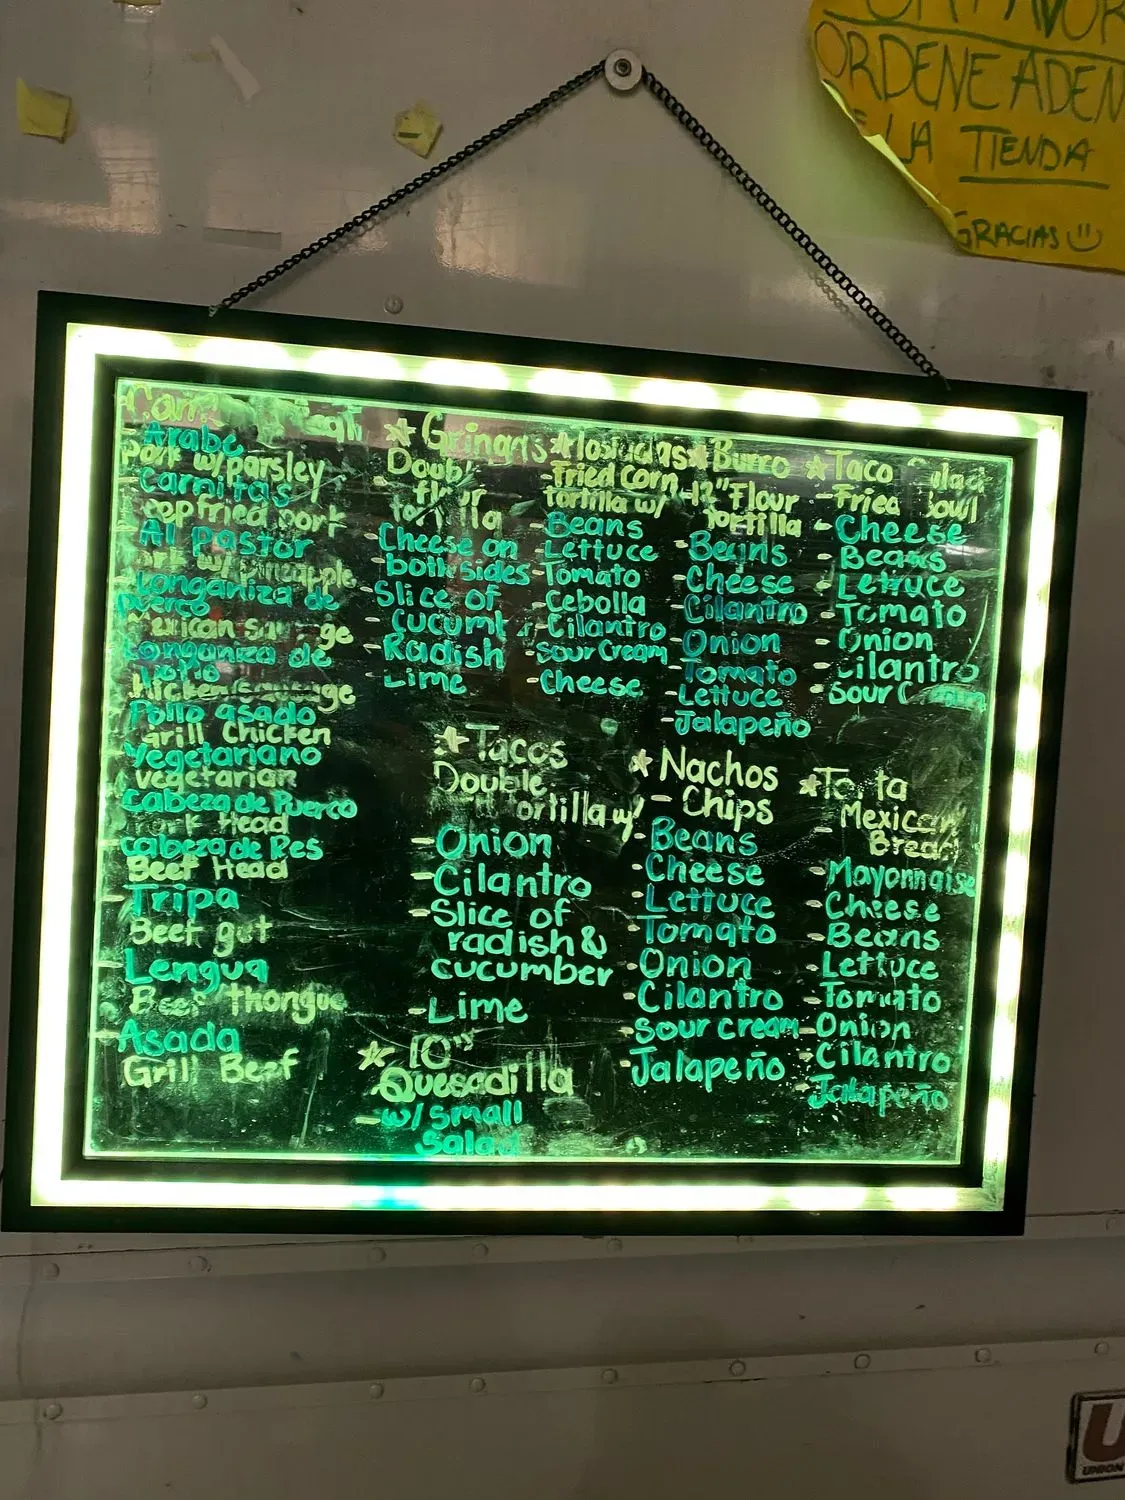 POR FAVOR
ORDENE ADEN
LA TIENDA
GRACIAS
Arabe
Pork w/parsley
Carnitas
Deepfried pork
Al pastor
Pork w/ pineapple
Longaniza de
Puerco
Mexican sausage
Longaniza de
Pollo
Chicken sausage
Pollo asado
Grill Chicken
Vegetariano
vegetarian
Cabeza de Puerco
Pork Head
Cabeza de Res
Beef Head
Tripa
Beef gut
Lengua
Beef Thongue
Asada
Grill Beef
Gringas
Double
flour
tortilla
- Cheese on
both sides
- Slice of
cucumber
- Radish
- Lime
Tostadas
- Fried corn
tortilla w/
- Beans
- Lettuce
- Tomato
- Cebolla
- Cilantro
- Sour Cream
- Cheese
Burro
- 12" Flour
Tortilla
- Beans
- Cheese
- Cilantro
- Onion
- Tomato
- Lettuce
- Jalapeño
Taco Salad
- Fried bowl
- Cheese
- Beans
- Lettuce
- Tomato
- Onion
- Cilantro
- Sour
Tacos
Double
Tortilla w/
- Onion
- Cilantro
- Slice of
radish &
cucumber
- Lime
10"
Quesadilla
- w/ small
Salad
Nachos
- Chips
- Beans
- Cheese
- Lettuce
- Tomato
- Onion
- Cilantro
- Sour cream
- Jalapeño
Torta
- Mexican
Bread
- Mayonnaise
- Cheese
- Beans
- Lettuce
- Tomato
- Onion
- Cilantro
- Jalapeño